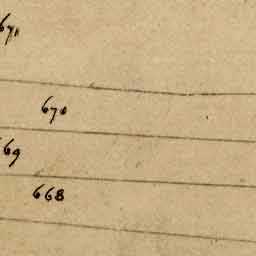 671
670
669
668